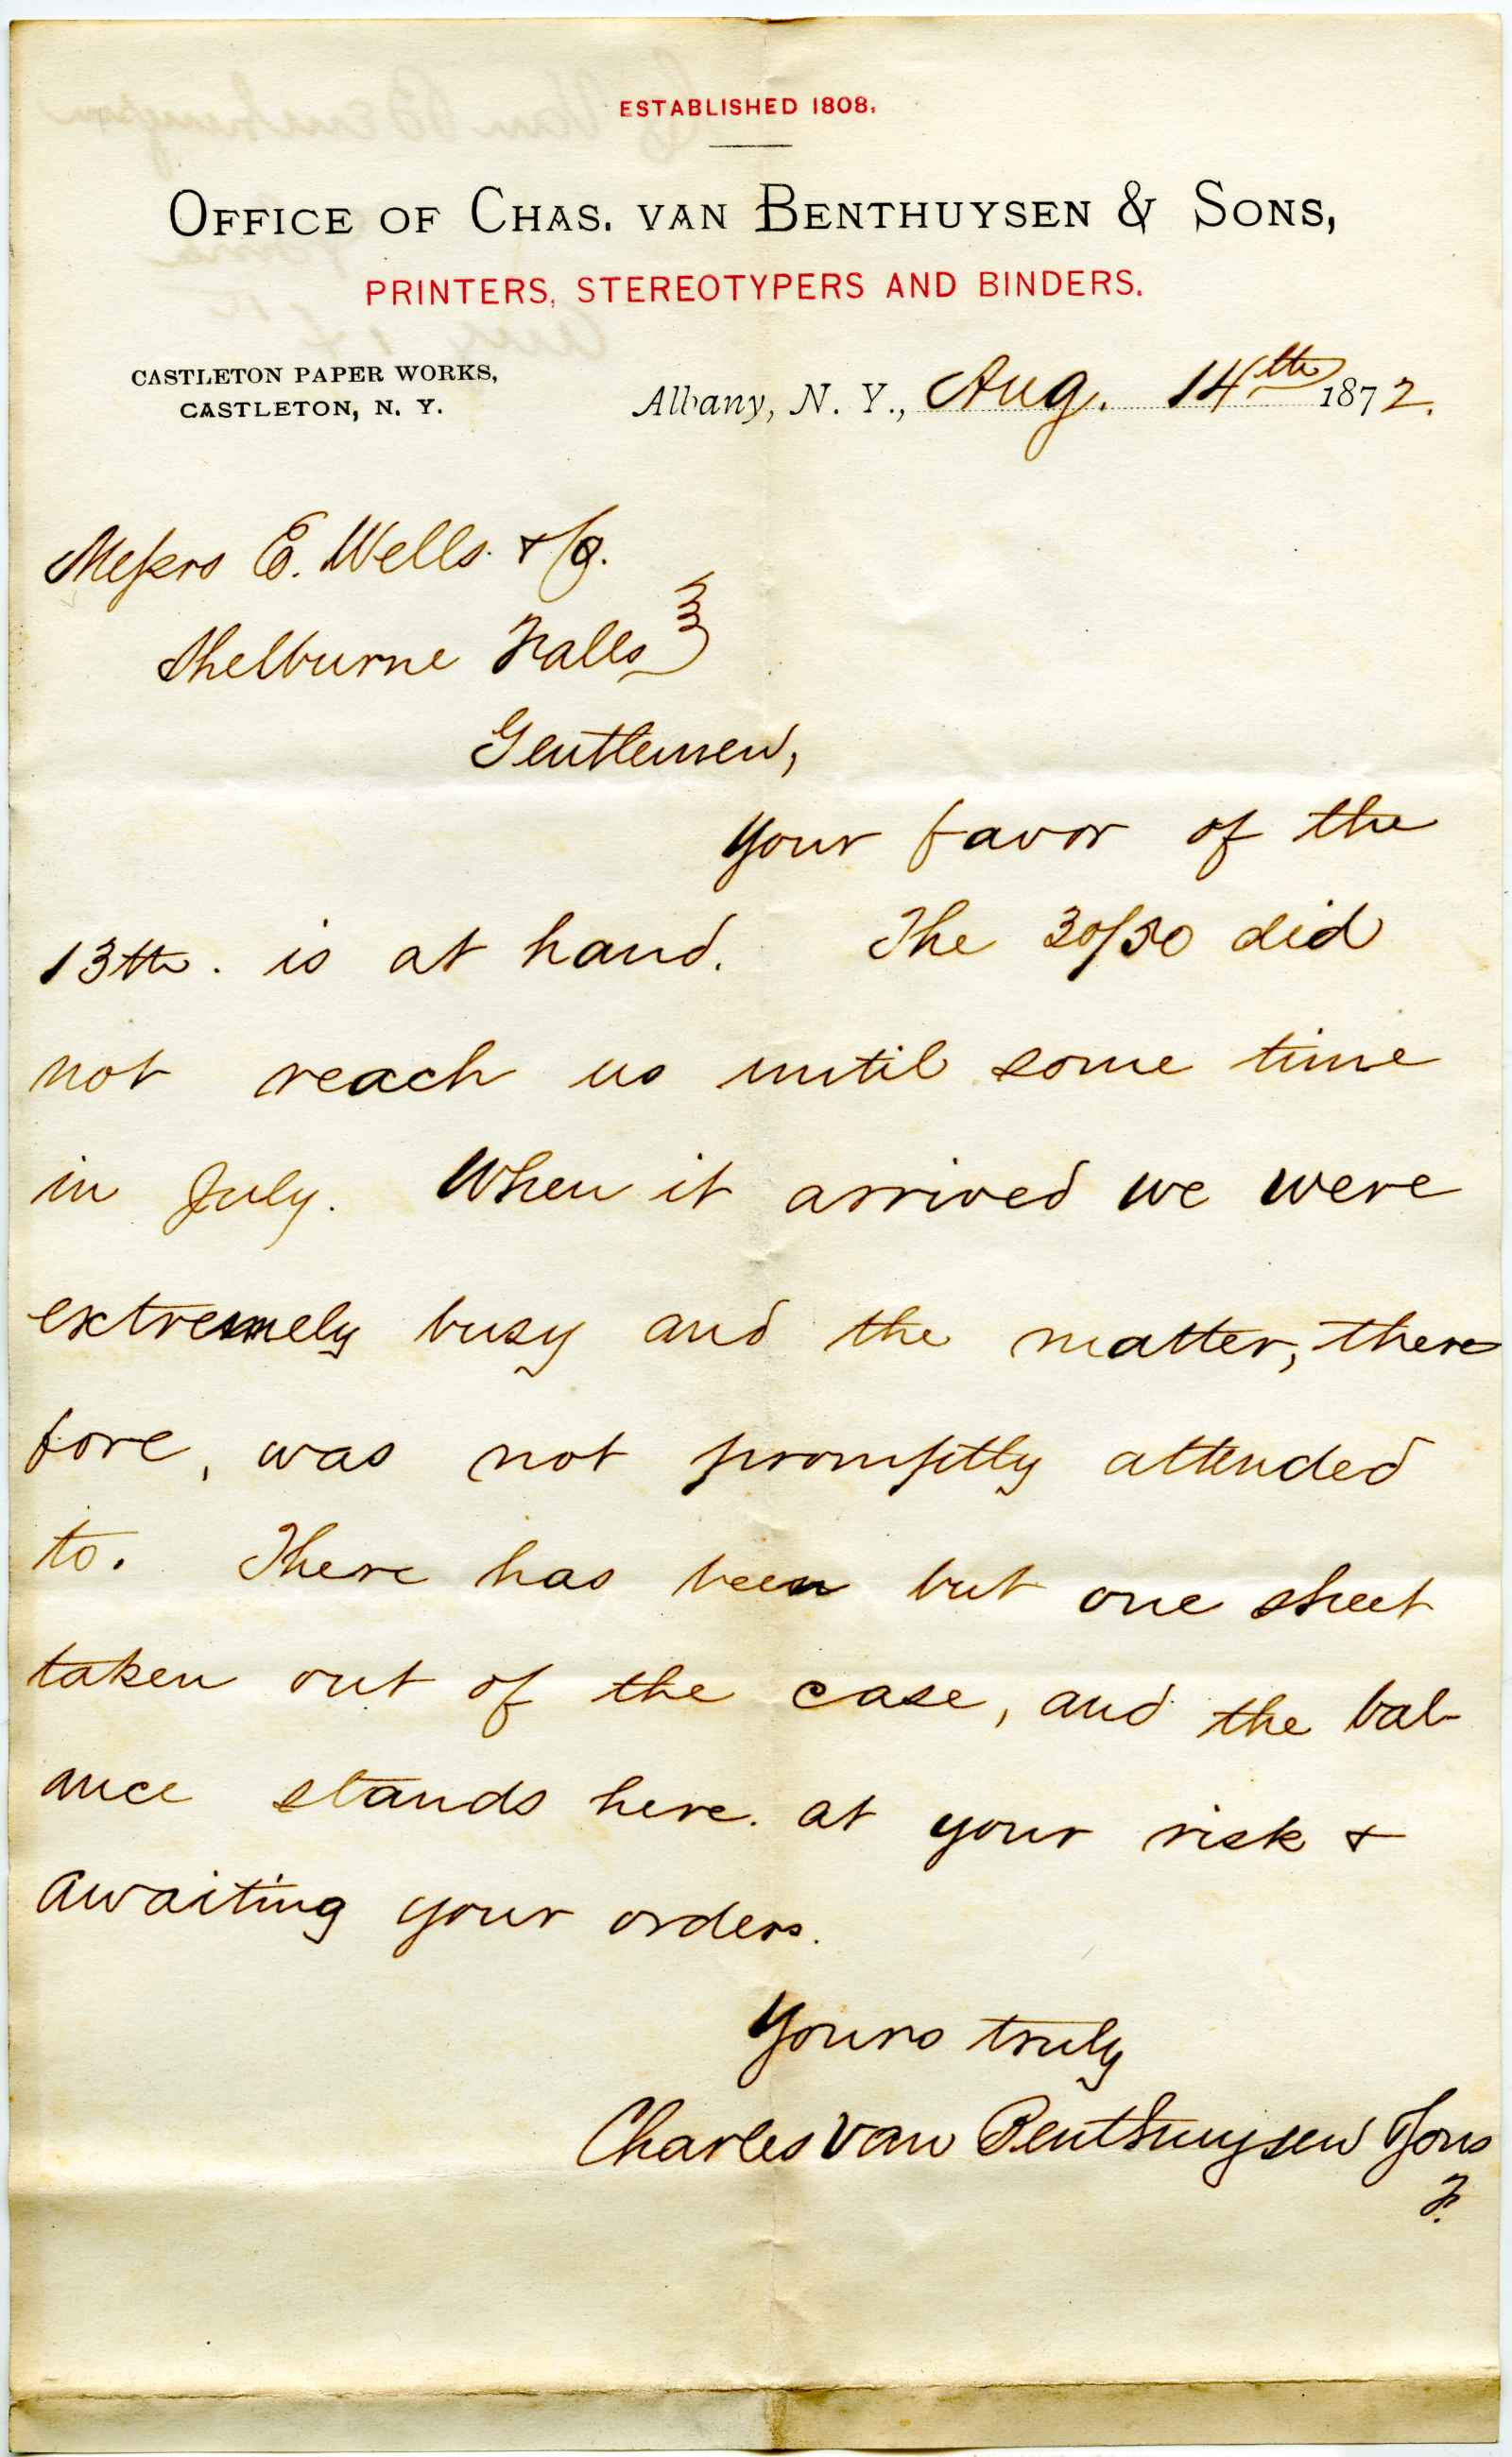 ESTABLISHED 1808.
OFFICE OF CHAS. VAN BENTHUYSEN & SONS,
PRINTERS, STEREOTYPERS AND BINDERS.
CASTLETON PAPER WORKS,
CASTLETON, N. Y.
Albany, N. Y., Aug. 14th 1872.
Messrs E. Wells & Co.
Shelburne Falls
Gentlemen,
Your favor of the
13th. is at hand. The 30/30 did
not reach us until some time
in July. When it arrived we were
extremely busy and the matter, there
fore, was not promptly attended
to. There has been but one sheet
taken out of the case, and the bal-
ance stands here. at your risk &
awaiting your orders.
Yours truly
Charles Van Benthuysen & Sons
F.